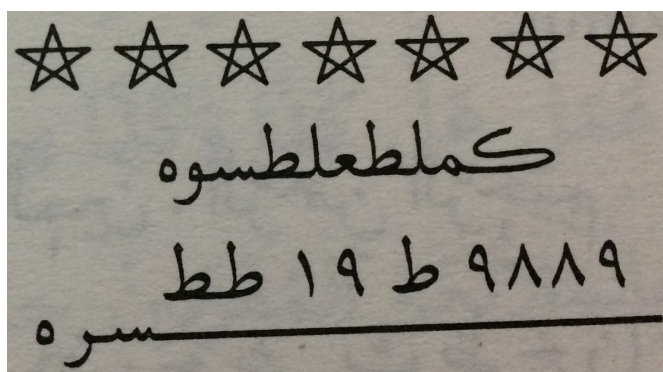 كملطعلطسوه
٩٨٨٩ ط ١٩ طط
سره